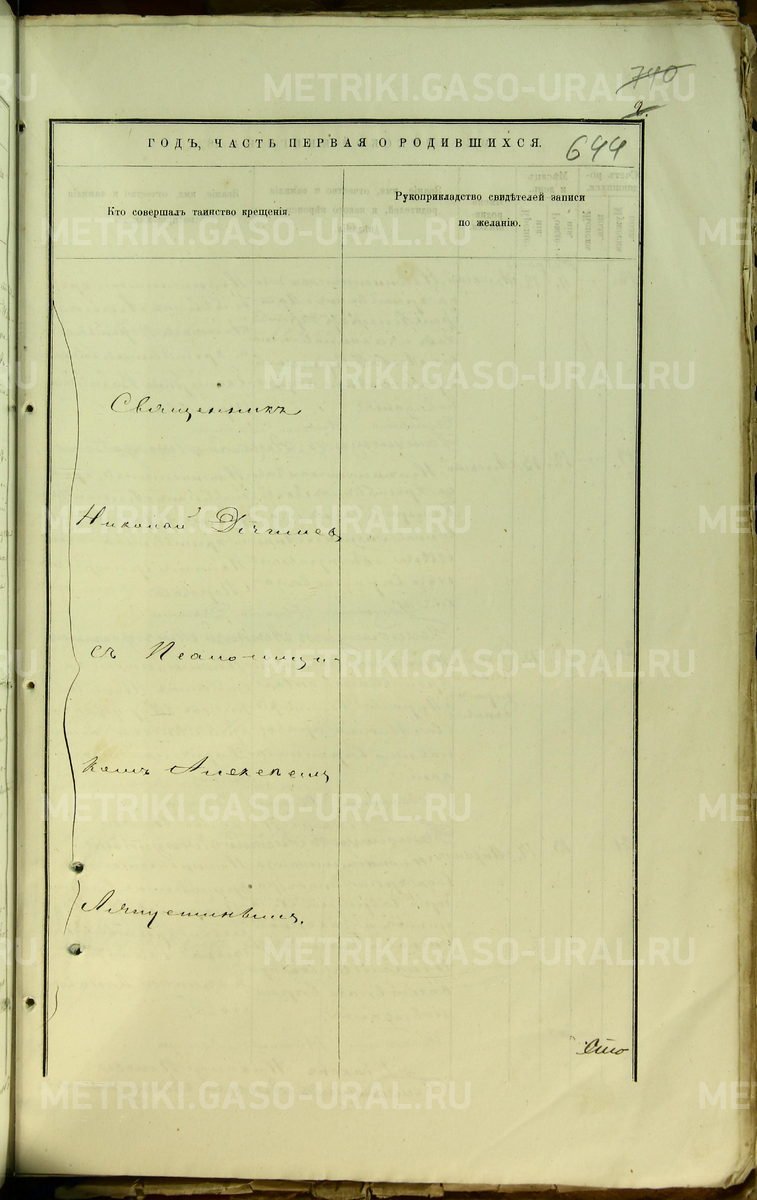 740
2.
644
ГОДЪ, ЧАСТЬ ПЕРВАЯ О РОДИВШИХСЯ.
Кто совершалъ таинство крещенія.
Рукоприкладство свидѣтелей записи
по желанію.
Священникъ
Николай
съ Псаломщи-
комъ Алексѣемъ
Ляпустинымъ.
Сто
METRIKI.GASO-URAL.RU